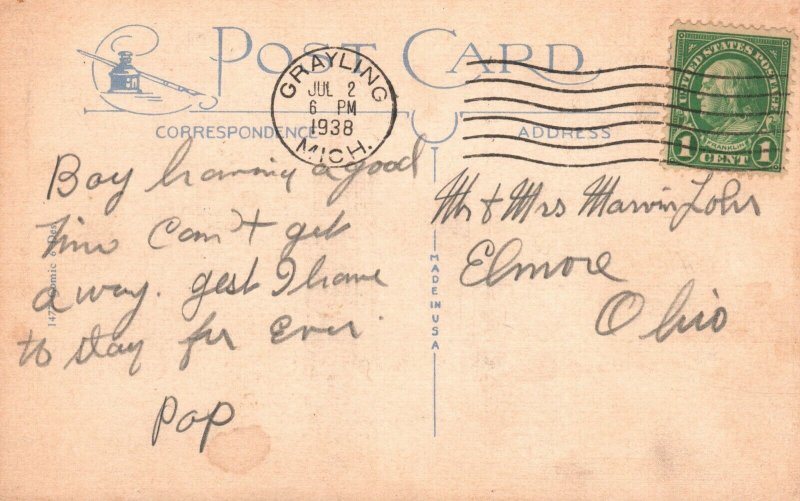 POST CARD
GRAYLING
JUL 2
6 PM
1938
MICH.
UNITED STATES POSTAGE
FRANKLIN
1 CENT 1
CORRESPONDENCE
ADDRESS
Boy having a good
time can't get
away. gest I have
to stay for Ever.
Pop
Mr & Mrs Marvin Lohr
Elmore
Ohio
MADE IN USA